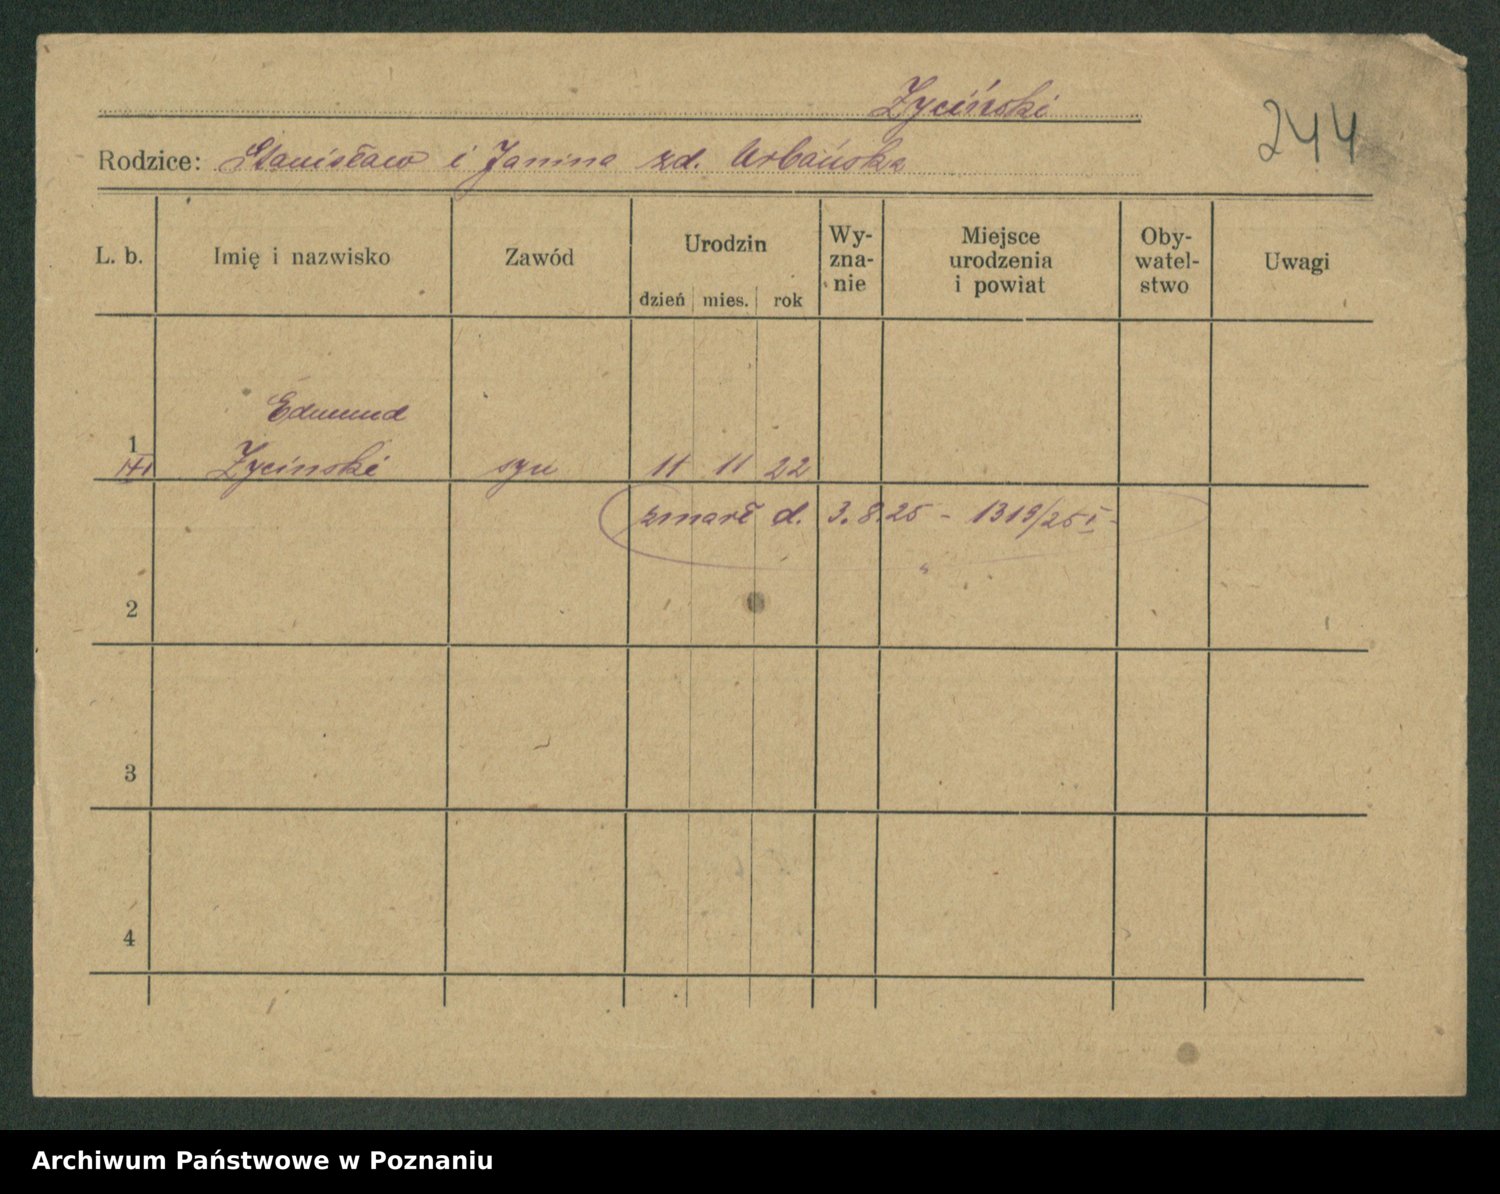 Życiński
244
Rodzice: Stanisław i Janina zd. Urbańska
L. b. Imię i nazwisko Zawód Urodzin dzień mies. rok Wy-zna-nie Miejsce urodzenia i powiat Oby-watel-stwo Uwagi
Edmund
1 Życinski syn 11 11 22
zmarł d. 3.8.25 - 1319/25 I -
2
3
4
Archiwum Państwowe w Poznaniu